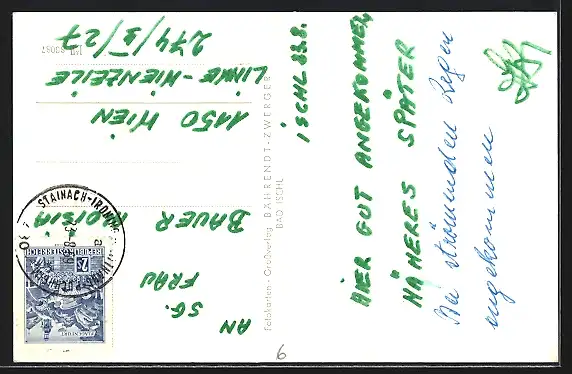 ISCHL 23.8.
HIER GUT ANGEKOMMEN,
NÄHERES SPÄTER
Bei strömenden Regen
angekommen
Fotokarten-Großverlag BÄHRENDT-ZWERGER
BAD ISCHL
AN
SG.
FRAU
BAUER ALOISIA
1150 WIEN
LINKE-WIENZEILE
274/3/27
STAINACH-IRDNING
KLAGENFURT
REPUBLIK ÖSTERREICH
6